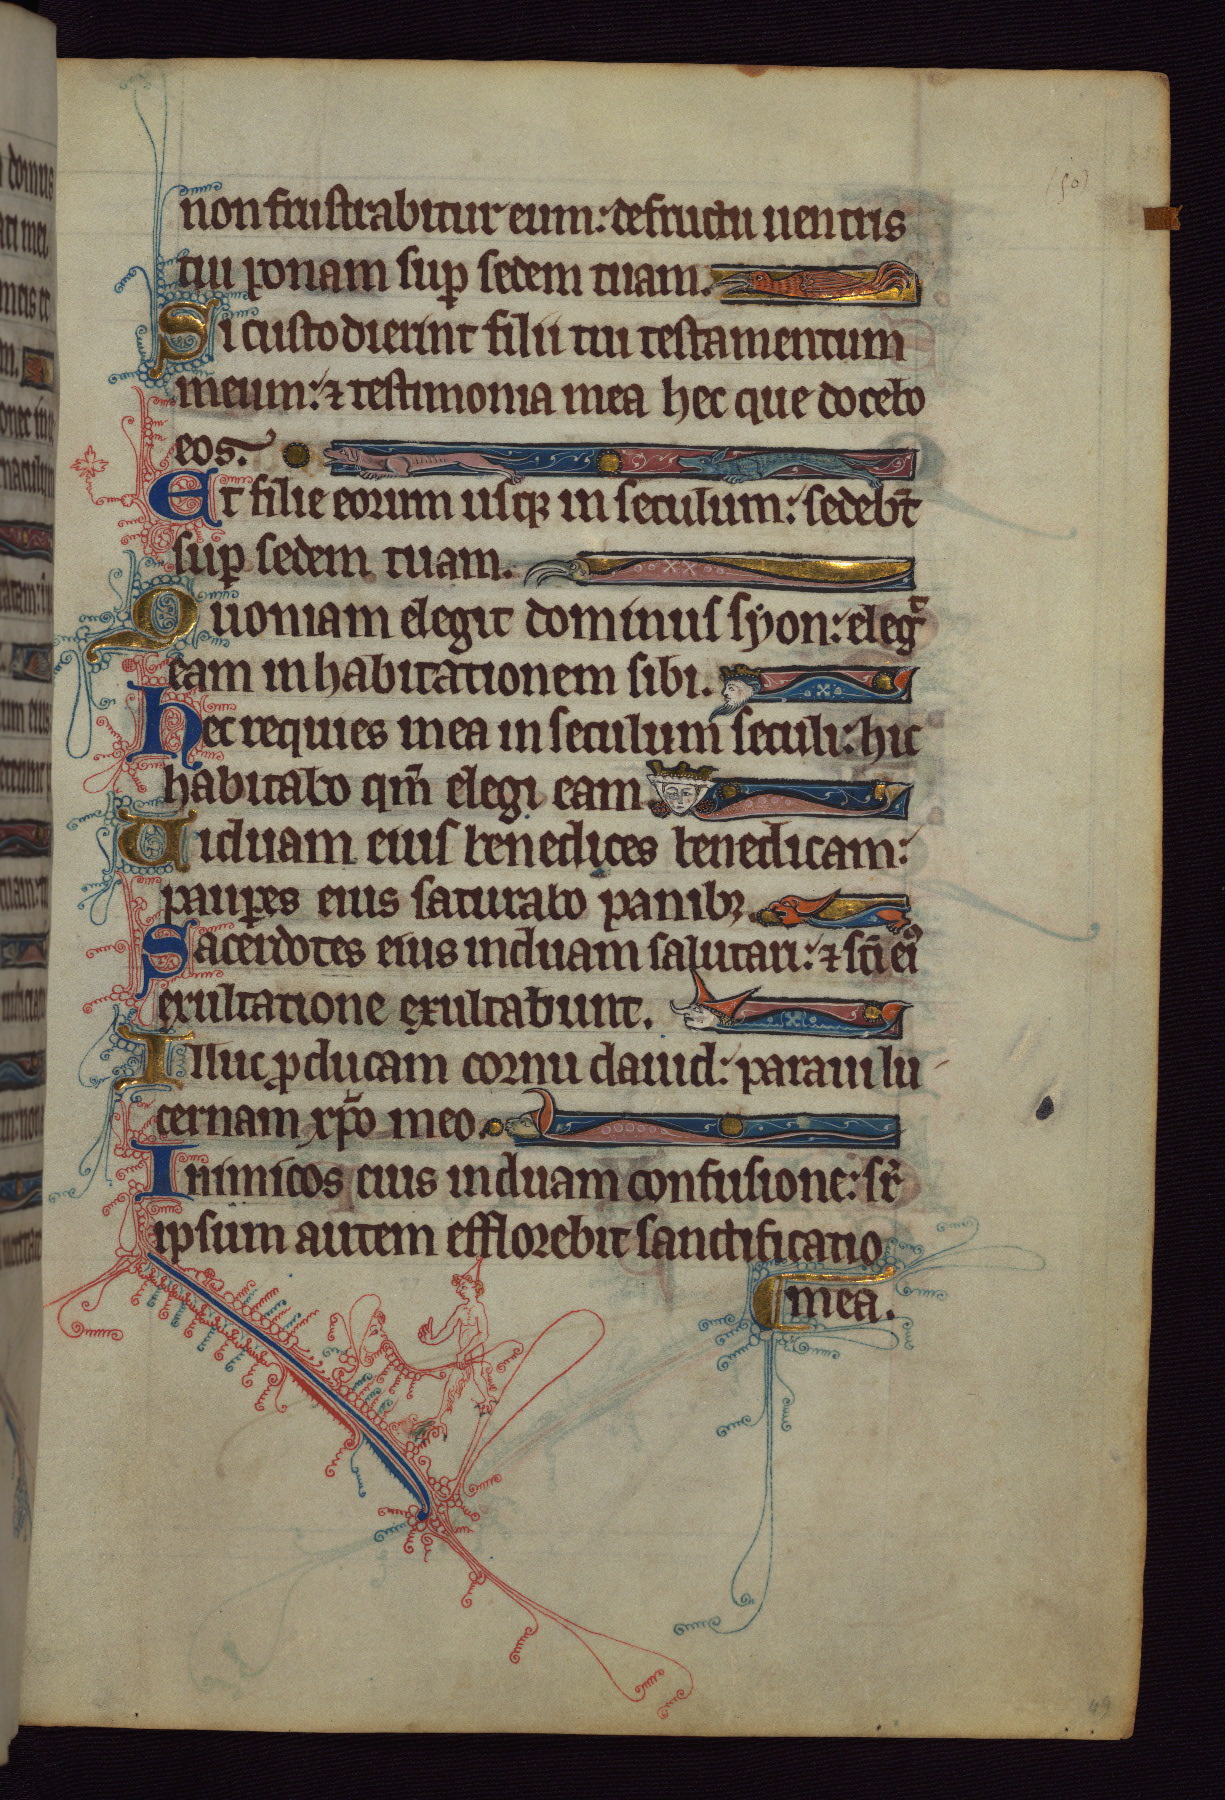 (50)
non frustrabitur eum: de fructu uentris
tui ponam sup̱ sedem tuam.
Si custodierint filii tui testamentum
meum: ⁊ testimonia mea hec que docebo
eos.
Et filie eorum usqꝫ in seculum: sedebt̄
sup̱ sedem tuam.
Quoniam elegit dominus syon: elegͭ
eam in habitationem sibi.
Hec requies mea in seculum seculi: hic
habitabo qm̄ elegi eam
Uiduam eius benedices benedicam:
paup̱es eius saturabo panibꝫ.
Sacerdotes eius induam salutari: ⁊ sc̄i eiꝰ
exultatione exultabunt.
Illuc ꝓducam cornu dauid: paraui lu
cernam xp̄o meo.
Inimicos eius induam confusione: sr̄
ipsum autem efflorebit sanctificatio
mea.
49